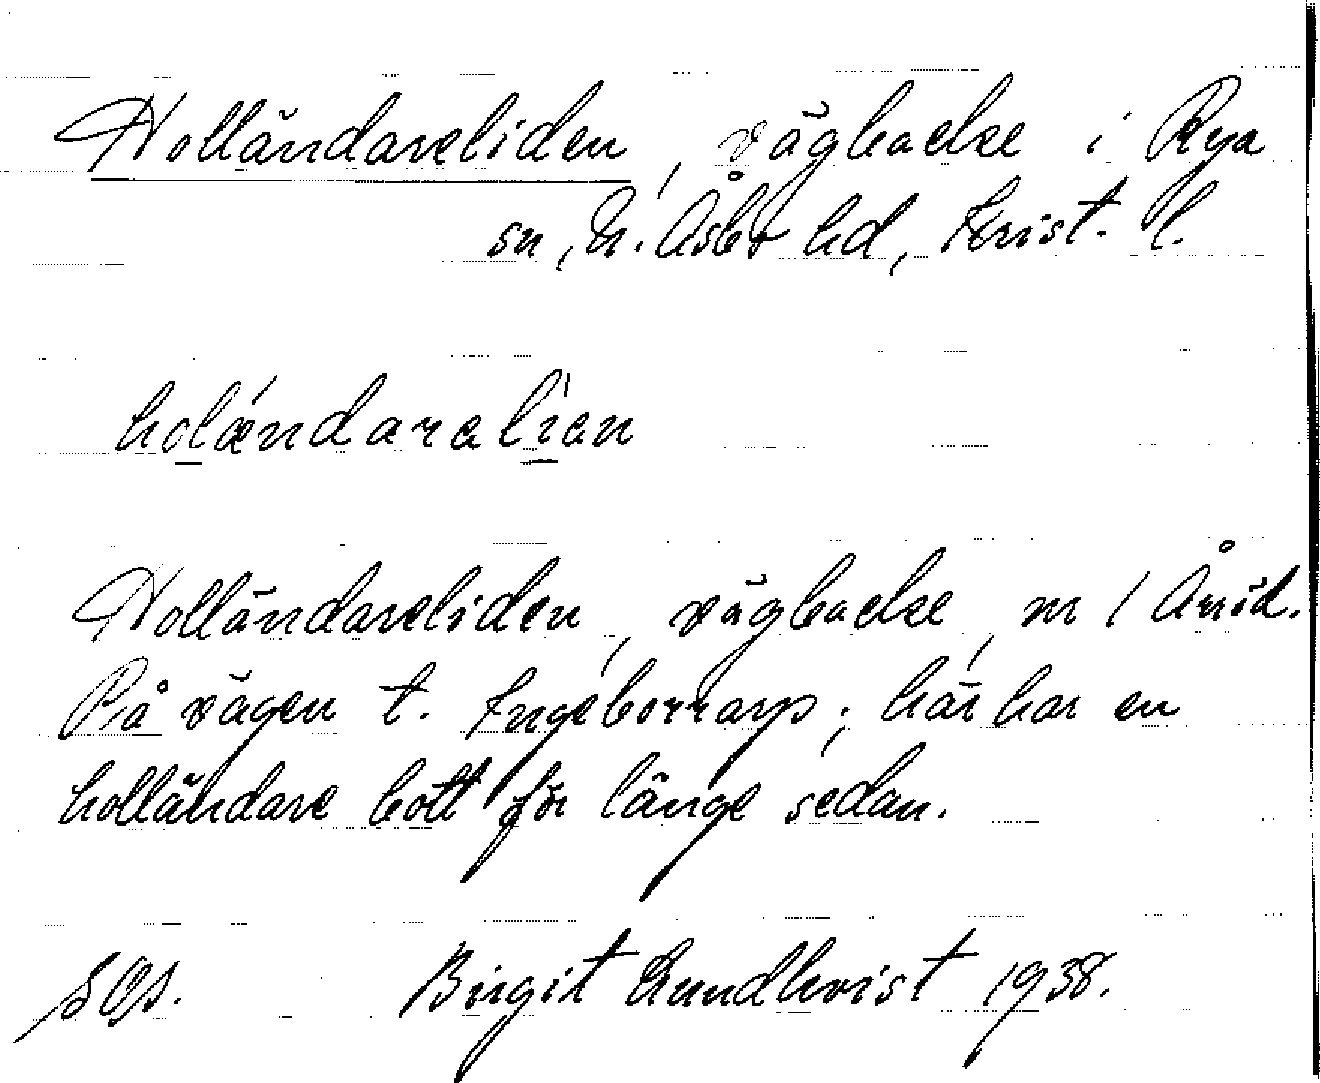 Holländareliden, vägbacke i Rya
sn, N. Åsbo hd, Krist. l.
holǽndaralían
Holländareliden, vägbacke, nr 1 Århd.
På vägen t. Ingeborrarp; här har en
holländare bott för länge sedan.
Birgit Lundkvist 1938.